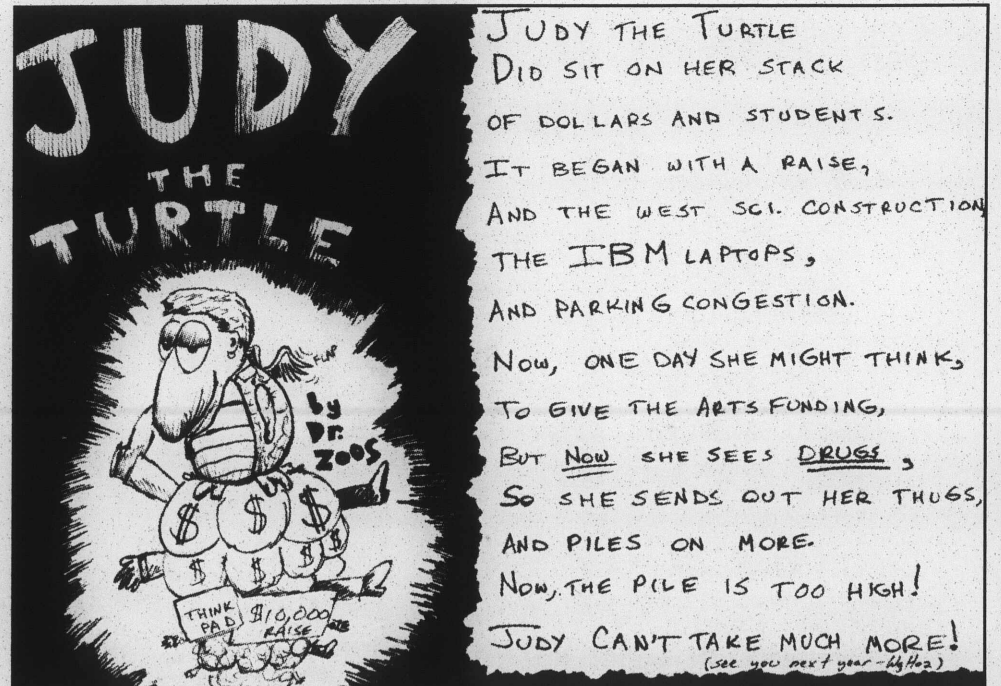 JUDY
THE
TURTLE
FLAP
by
Dr.
ZOOS
$ $ $
$ $ $ $
THINK
PAD
$10,000
RAISE
JUDY THE TURTLE
DID SIT ON HER STACK
OF DOLLARS AND STUDENTS.
IT BEGAN WITH A RAISE,
AND THE WEST SCI. CONSTRUCTION,
THE IBM LAPTOPS,
AND PARKING CONGESTION.
NOW, ONE DAY SHE MIGHT THINK,
TO GIVE THE ARTS FUNDING,
BUT NOW SHE SEES DRUGS,
SO SHE SENDS OUT HER THUGS,
AND PILES ON MORE.
NOW, THE PILE IS TOO HIGH!
JUDY CAN'T TAKE MUCH MORE!
(see you next year -